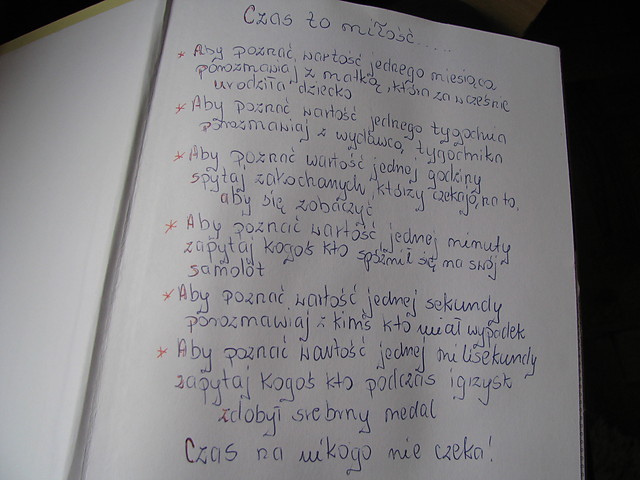 Czas to miłość.....
* Aby poznać wartość jednego miesiąca
porozmawiaj z matką, która za wcześnie
urodziła dziecko
* Aby poznać wartość jednego tygodnia
porozmawiaj z wydawcą tygodnika
* Aby poznać wartość jednej godziny
spytaj zakochanych, którzy czekają na to,
aby się zobaczyć
* Aby poznać wartość jednej minuty
zapytaj kogoś kto spóźnił się na swój
samolot
* Aby poznać wartość jednej sekundy
porozmawiaj z kimś kto miał wypadek
* Aby poznać wartość jednej milisekundy
zapytaj kogoś kto podczas igrzysk
zdobył srebrny medal
Czas na nikogo nie czeka!